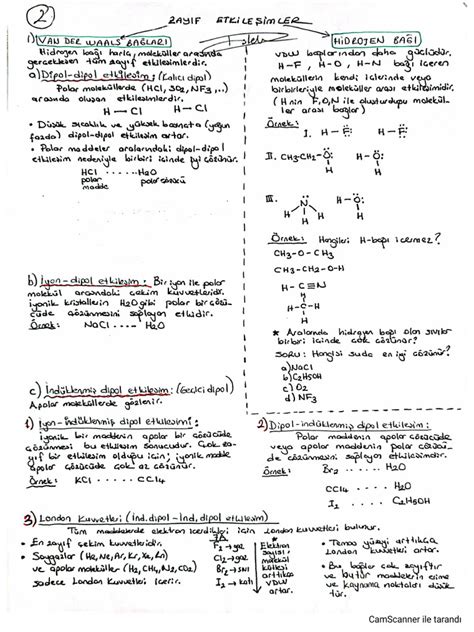 2
ZAYIF ETKİLEŞİMLER
1) VAN DER WAALS BAĞLARI
Hidrojen bağı hariç, moleküller arasında
gerçekleşen tüm zayıf etkileşimlerdir.
a) Dipol-dipol etkileşim: (Kalıcı dipol)
Polar moleküllerde (HCl, SO2, NF3,..)
arasında oluşan etkileşimlerdir.
H—Cl H—Cl
• Düşük sıcaklık ve yüksek basınçta (yoğun
fazda) dipol-dipol etkileşim artar.
• Polar maddeler aralarındaki dipol-dipol
etkileşim nedeniyle birbiri içinde iyi çözünür.
HCl ...... H2O
polar madde
polar çözücü
b) İyon-dipol etkileşim: Bir iyon ile polar
molekül arasındaki çekim kuvvetleridir.
İyonik kristallerin H2O gibi polar bir çözü-
cüde çözünmesini sağlayan etkidir.
Örnek: NaCl .... H2O
c) İndüklenmiş dipol etkileşim: (Geçici dipol)
Apolar moleküllerde gözlenir.
1) İyon-indüklenmiş dipol etkileşimi:
İyonik bir maddenin apolar bir çözücüde
çözünmesi bu etkileşim sonucudur. Çok za-
yıf bir etkileşim olduğu için; iyonik madde
apolar çözücüde çok az çözünür.
Örnek: KCl ..... CCl4
HİDROJEN BAĞI
VDW bağlarından daha güçlüdür.
H-F, H-O, H-N bağı içeren
moleküllerin kendi içlerinde veya
birbirleriyle moleküller arası etkileşimidir.
(H nin F,O,N ile oluşturduğu molekül-
ler arası bağlar)
Örnek:
I. H-F: H-F:
II. CH3-CH2-O: H-O:
H H
III. N H-O:
H H H H
Örnek: Hangileri H-bağı içermez?
CH3-O-CH3
CH3-CH2-O-H
H-C≡N
H
H-C-H
H
* Aralarında hidrojen bağı olan sıvılar
birbiri içinde çok çözünür.
SORU: Hangisi suda en iyi çözünür?
a) NaCl
b) C2H5OH
c) O2
d) NF3
2) Dipol-indüklenmiş dipol etkileşim:
Polar maddenin apolar çözücüde
veya apolar maddenin polar çözücü-
de çözünmesini sağlayan etkileşimdir.
Örnek: Br2 ..... H2O
CCl4 .... H2O
I2 .... C2H5OH
3) London Kuvvetleri (İnd.dipol-İnd.dipol etkileşim)
Tüm maddelerde elektron içerdikleri için London kuvvetleri bulunur.
• En zayıf çekim kuvvetleridir.
• Soygazlar (He, Ne, Ar, Kr, Xe, Rn)
ve apolar moleküller (H2, CH4, N2, CO2)
sadece London Kuvvetleri içerir.
7A
F2 → gaz
Cl2 → gaz
Br2 → sıvı
I2 → katı
* Elektron
sayısı,
molekül
kütlesi
arttıkça
VDW
artar.
• Temas yüzeyi arttıkça
London kuvvetleri artar.
• Bu bağlar çok zayıftır
ve bu tür maddelerin erime
ve kaynama noktaları
düşüktür.
CamScanner ile tarandı